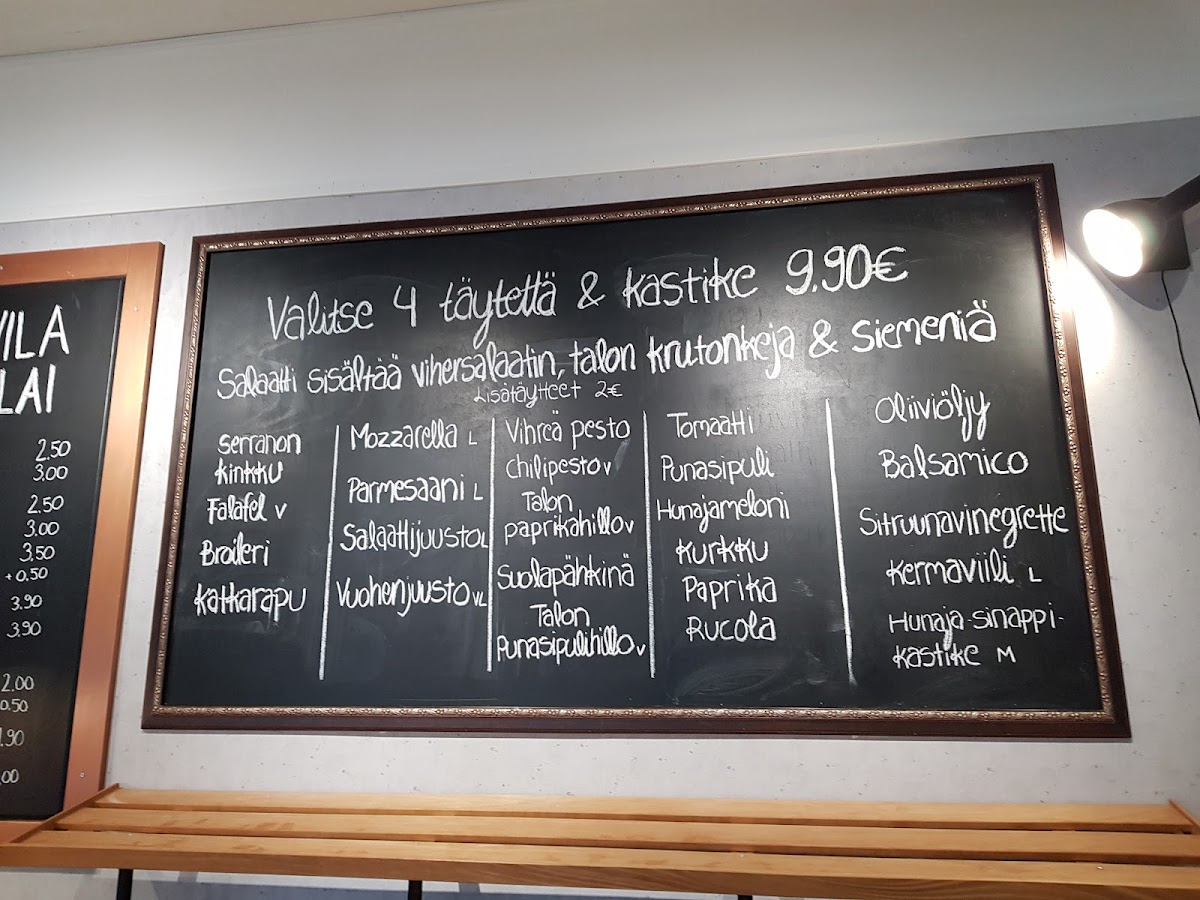 VILA
LAI
2.50
3.00
2.50
3.00
3.50
+0.50
3.90
3.90
2.00
0.50
1.90
.00
Valitse 4 täytettä & kastike 9.90€
Salaatti sisältää vihersalaatin, talon krutonkeja & siemeniä
Lisätäytteet 2€
Serranon
kinkku
Falafel V
Broileri
Katkarapu
Mozzarella L
Parmesaani L
Salaattijuusto L
Vuohenjuusto VL
Vihreä pesto
Chilipesto V
Talon
paprikahillo V
Suolapähkinä
Talon
Punasipulihillo V
Tomaatti
Punasipuli
Hunajameloni
Kurkku
Paprika
Rucola
Oliiviöljy
Balsamico
Sitruunavinegrette
Kermaviili L
Hunaja-sinappi-
kastike M